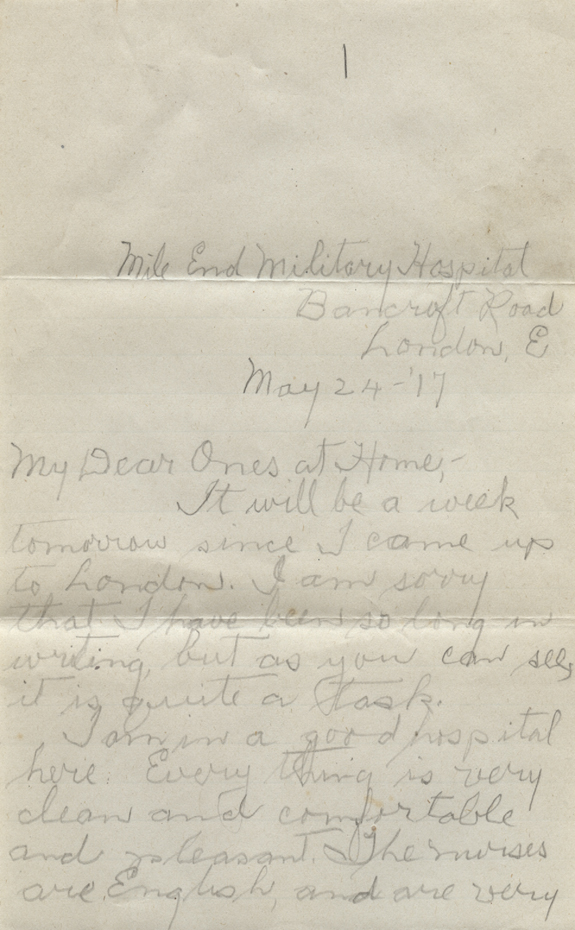 1
Mile End Military Hospital
Bancroft Road
London, E
May 24-'17
My Dear Ones at Home,-
It will be a week
tomorrow since I came up
to London. I am sorry
that I have been so long in
writing, but as you can see,
it is quite a task.
I am in a good hospital
here. Every thing is very
clean and comfortable
and pleasant. The nurses
are English, and are very